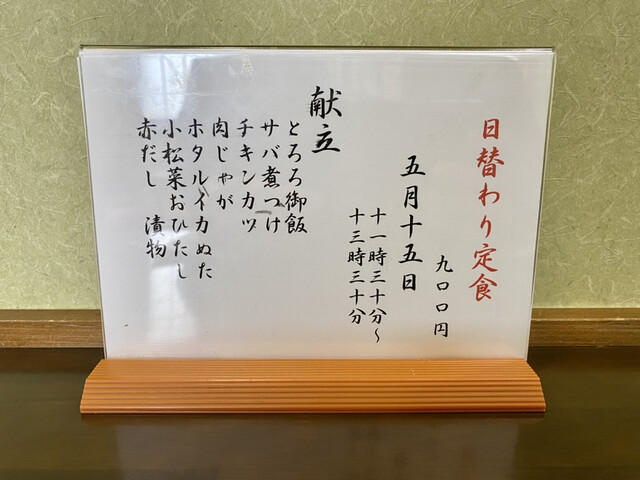 日替わり定食
九〇〇円
五月十五日
十一時三十分〜
十三時三十分
献立
とろろ御飯
サバ煮つけ
チキンカツ
肉じゃが
ホタルイカぬた
小松菜おひたし
赤だし　漬物